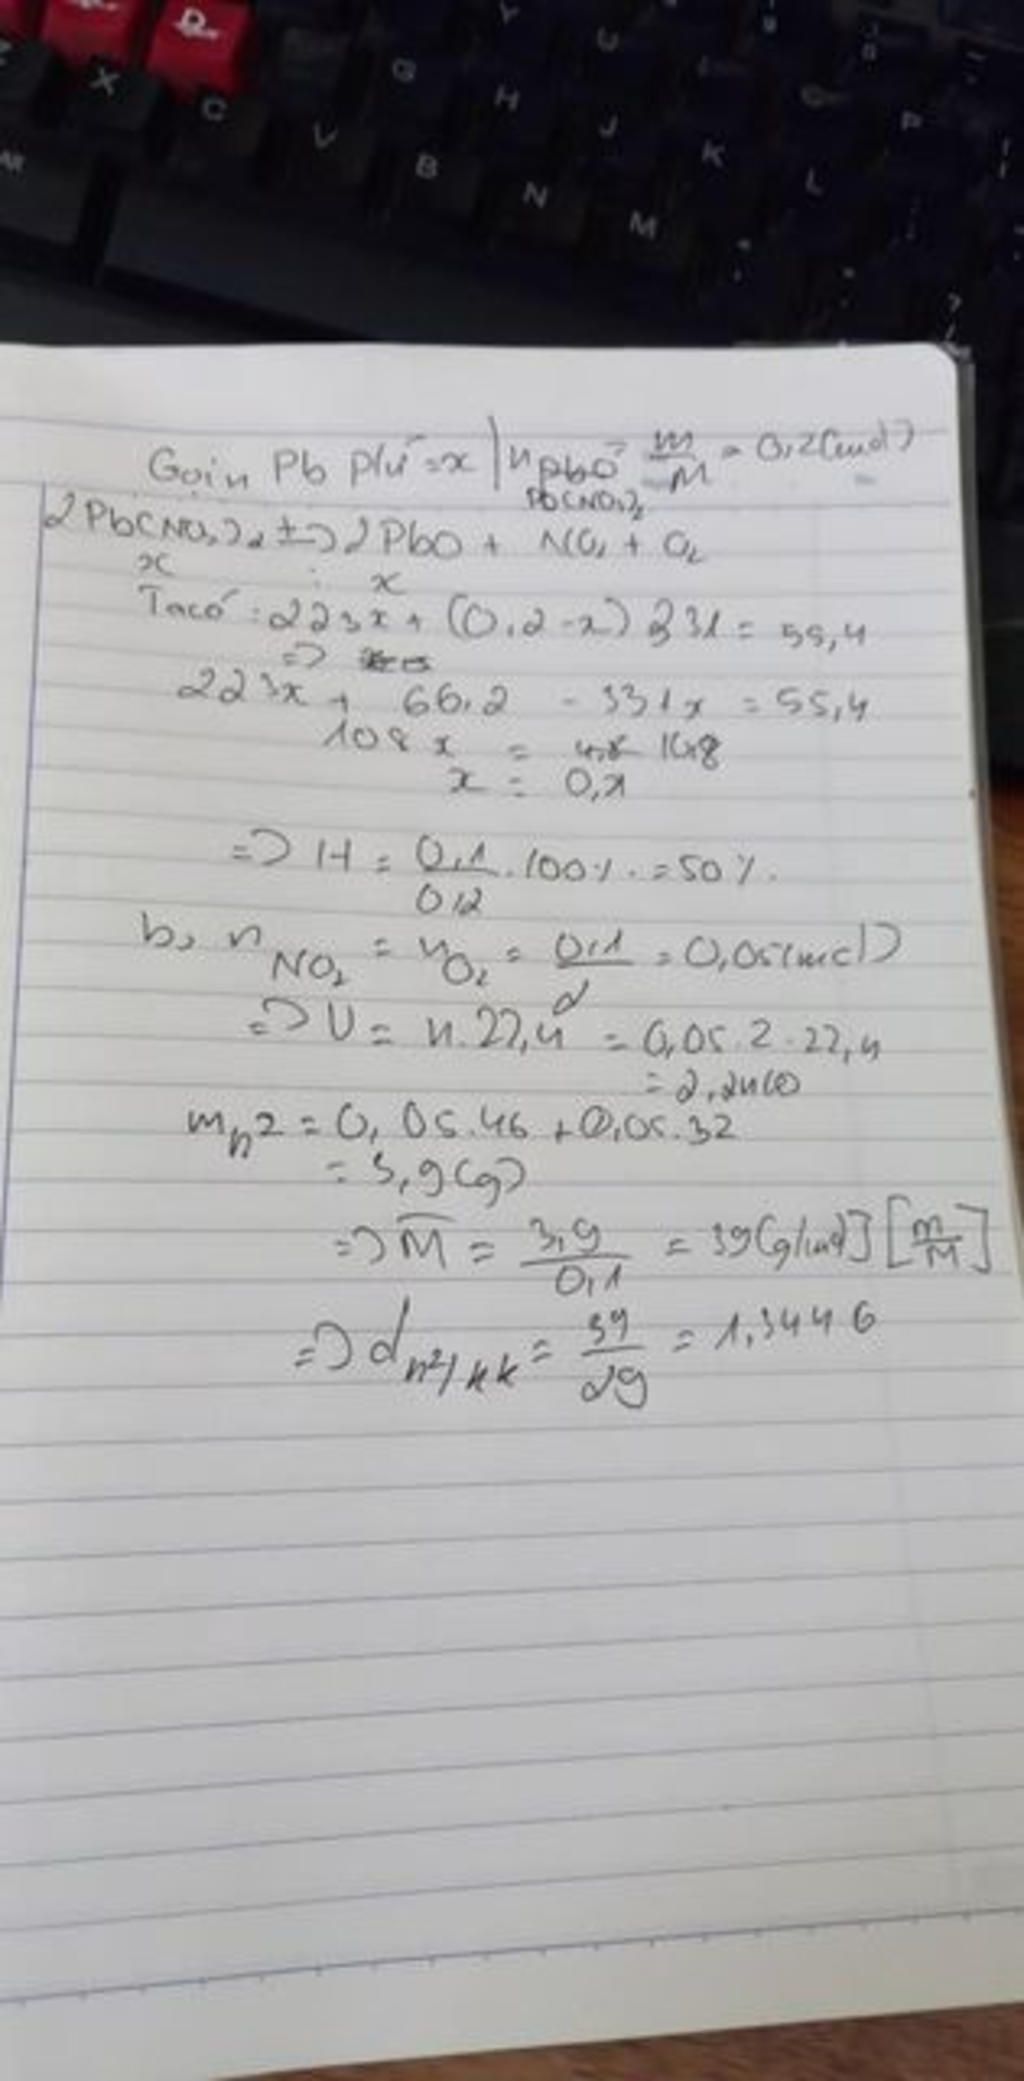 D
Y U
X C G H J K L P
V B N M
?
Gọi n Pb p/ứ = x | n PbO = m/M = 0,2 (mol)
Pb(NO3)2
2Pb(NO3)2 t°→ 2PbO + NO2 + O2
x x
Ta có: 223x + (0,2-x) 331 = 55,4
=>
223x + 66,2 - 331x = 55,4
108x = 10,8
x = 0,1
=> H = 0,1/0,2 . 100% = 50%.
b, n NO2 = n O2 = 0,1/2 = 0,05 (mol)
=> V = n.22,4 = 0,05.2.22,4
= 2,24(l)
m h2 = 0,05.46 + 0,05.32
= 3,9(g)
=> M̅ = 3,9/0,1 = 39 (g/mol) [m/M]
=> d h2/kk = 39/29 = 1,3446